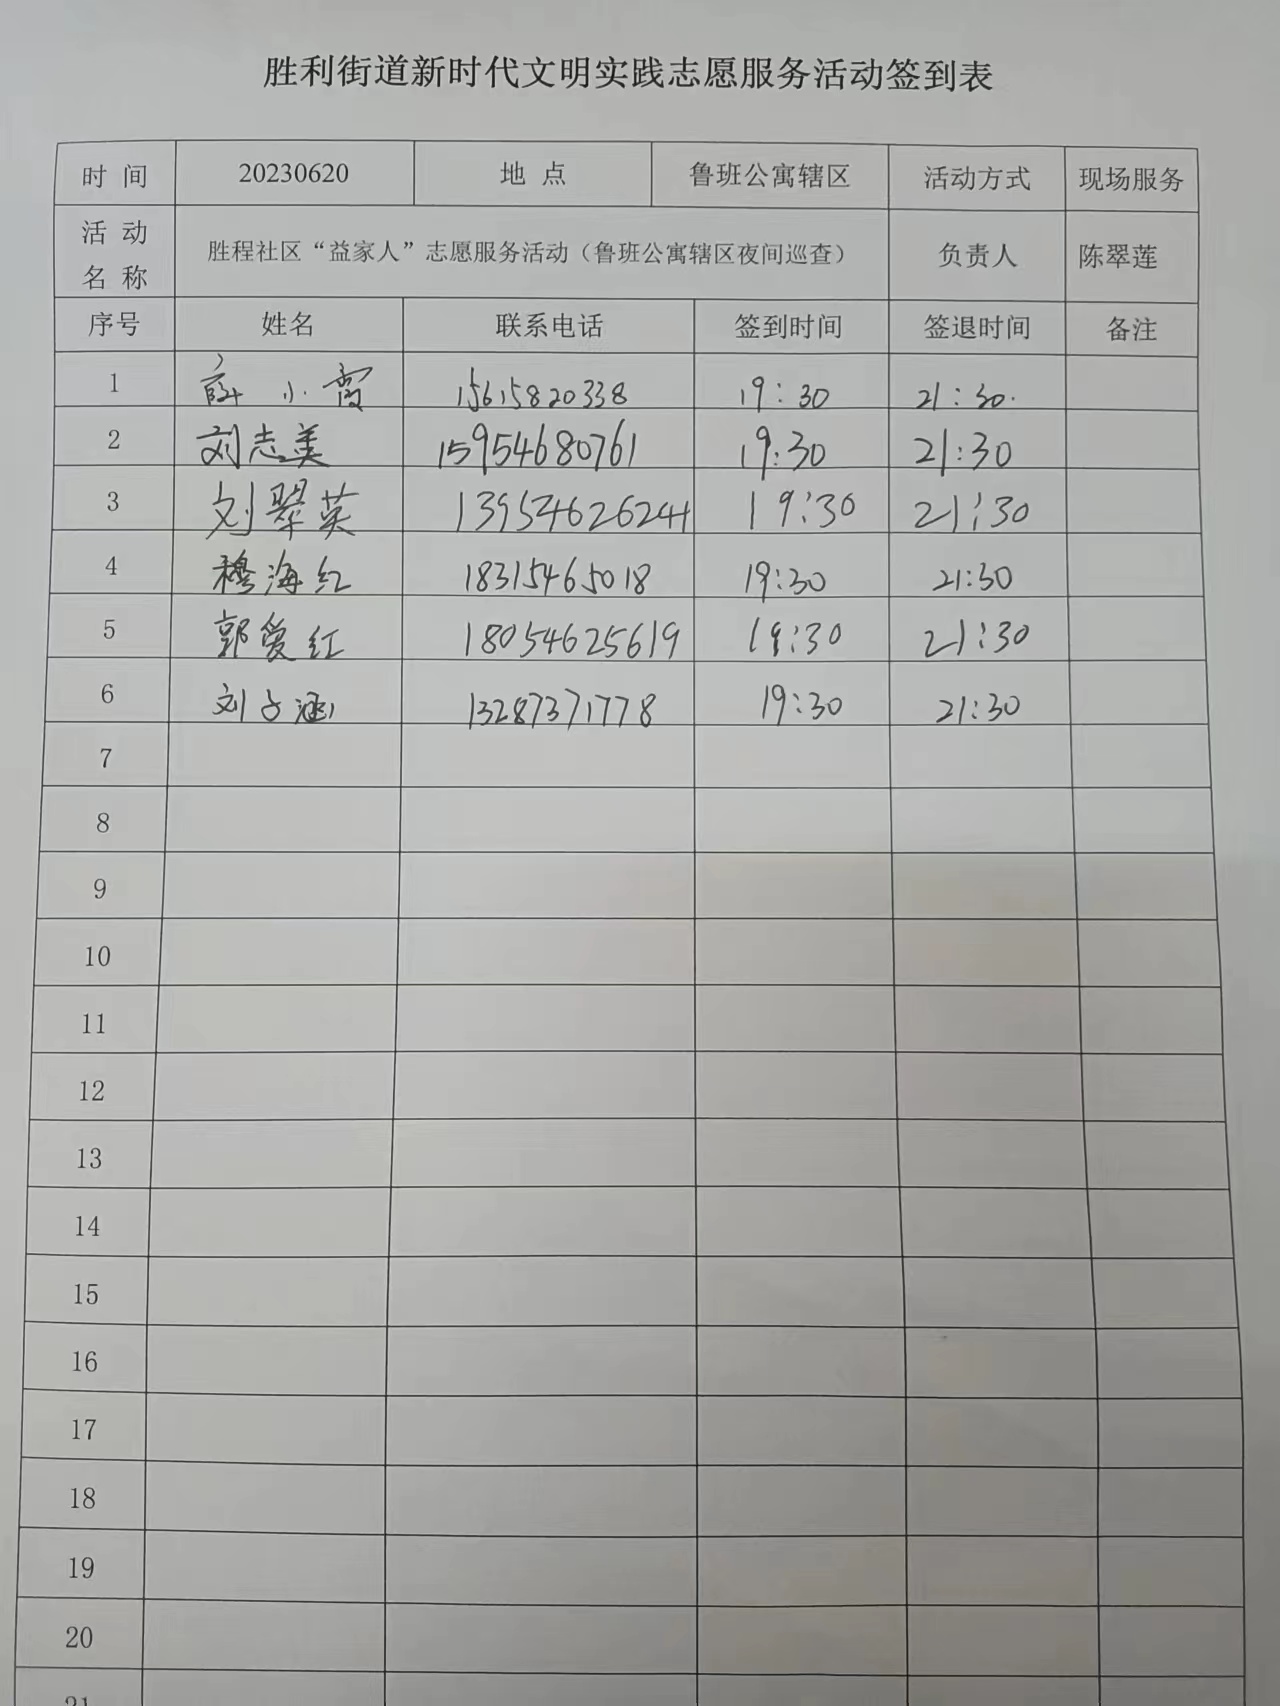 胜利街道新时代文明实践志愿服务活动签到表
时 间 20230620 地 点 鲁班公寓辖区 活动方式 现场服务
活 动 名 称 胜程社区“益家人”志愿服务活动（鲁班公寓辖区夜间巡查） 负责人 陈翠莲
序号 姓名 联系电话 签到时间 签退时间 备注
1 薛小霞 15615820338 19:30 21:30.
2 刘志美 15954680761 19:30 21:30
3 刘翠英 13954626241 19:30 21:30
4 穆海红 18315465018 19:30 21:30
5 郭爱红 18054625619 19:30 21:30
6 刘子涵 13287371778 19:30 21:30
7
8
9
10
11
12
13
14
15
16
17
18
19
20
21